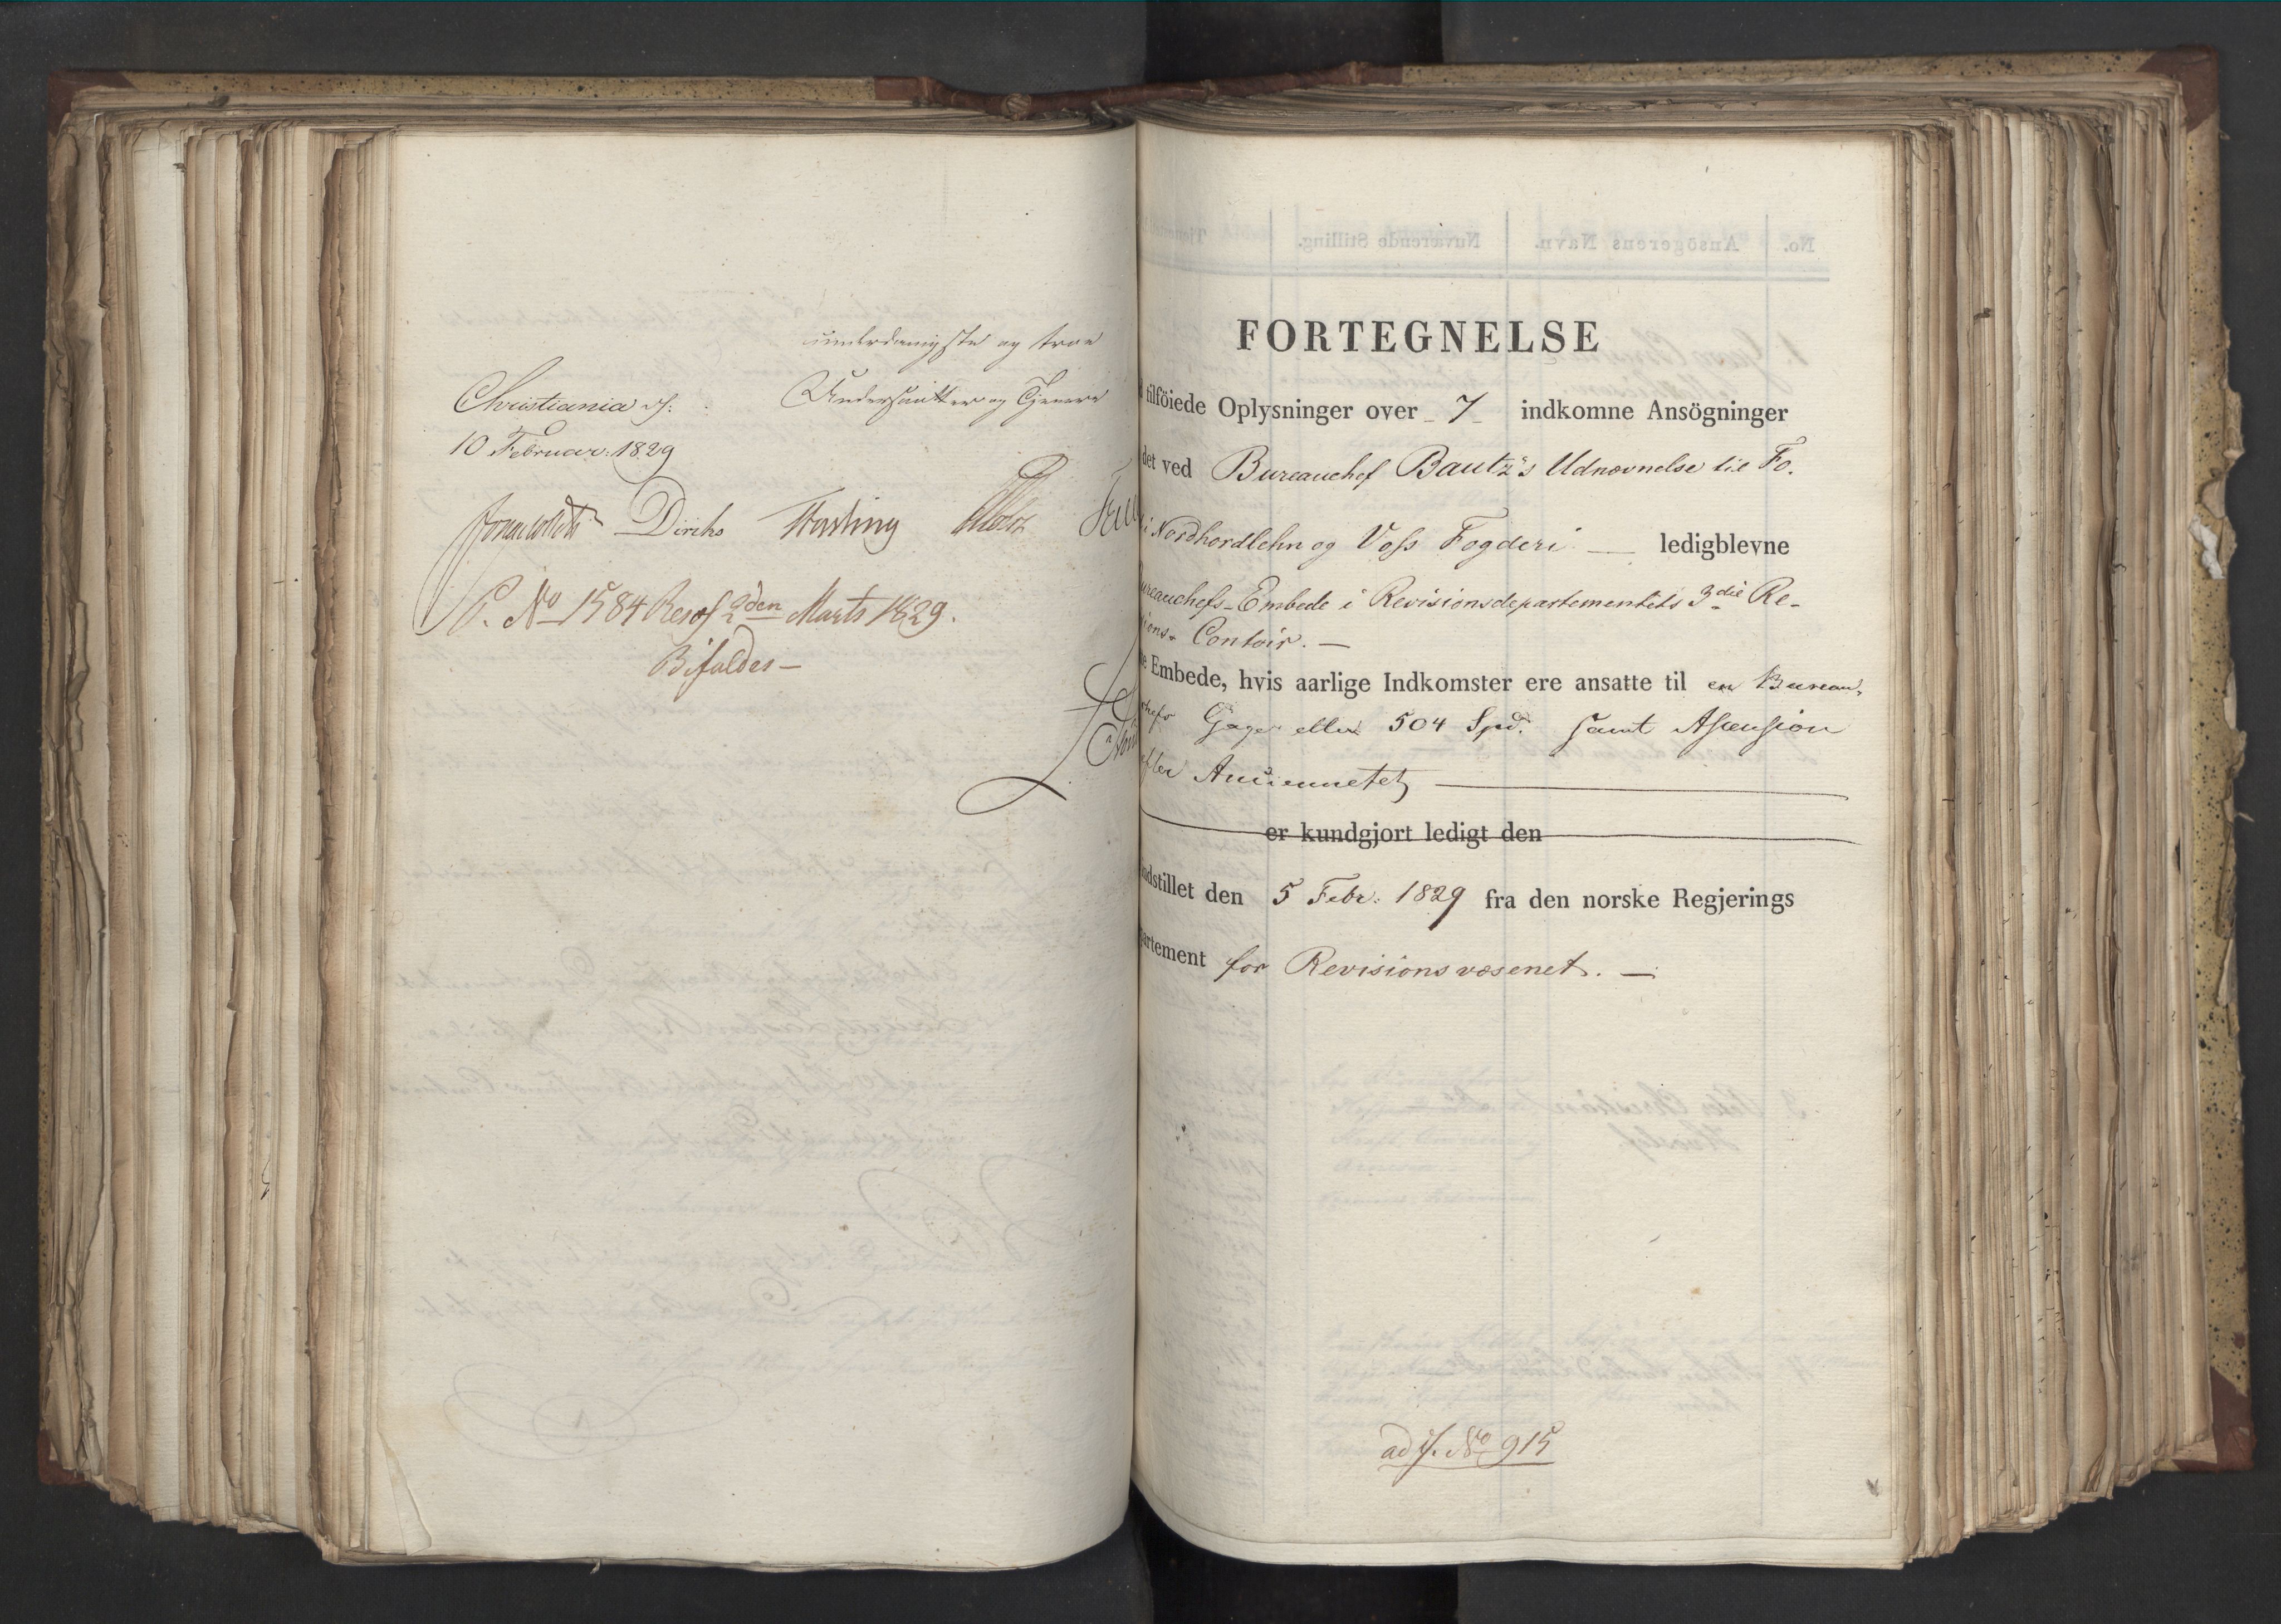 underdanigste og troe
Undersaatter og Tjenere
Christiania d.
10 Februar: 1829
Diriks
S. No 1584 Resol 2den Marts 1829.
Bifaldes —
FORTEGNELSE
tilföiede Oplysninger over 7 indkomne Ansögninger
det ved Bureauchef Bautz's Udnævnelse til Fo-
i Nordhordlehn og Voss Fogderi — ledigblevne
ureauchefs-Embede i Revisionsdepartementets 3die Re-
ions- Contoir. —
e Embede, hvis aarlige Indkomster ere ansatte til en Bureau-
chefs Gage eller 504 Spd. samt Ascension
efter Anciennetet
er kundgjort ledigt den
ndstillet den 5 Febr: 1829 fra den norske Regjerings
artement for Revisionsvæsenet. —
ad J. No 915